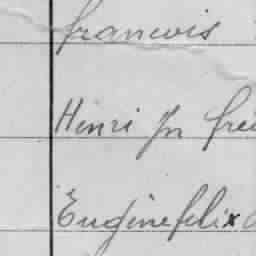 francois
Henri Jn
Eugène felix